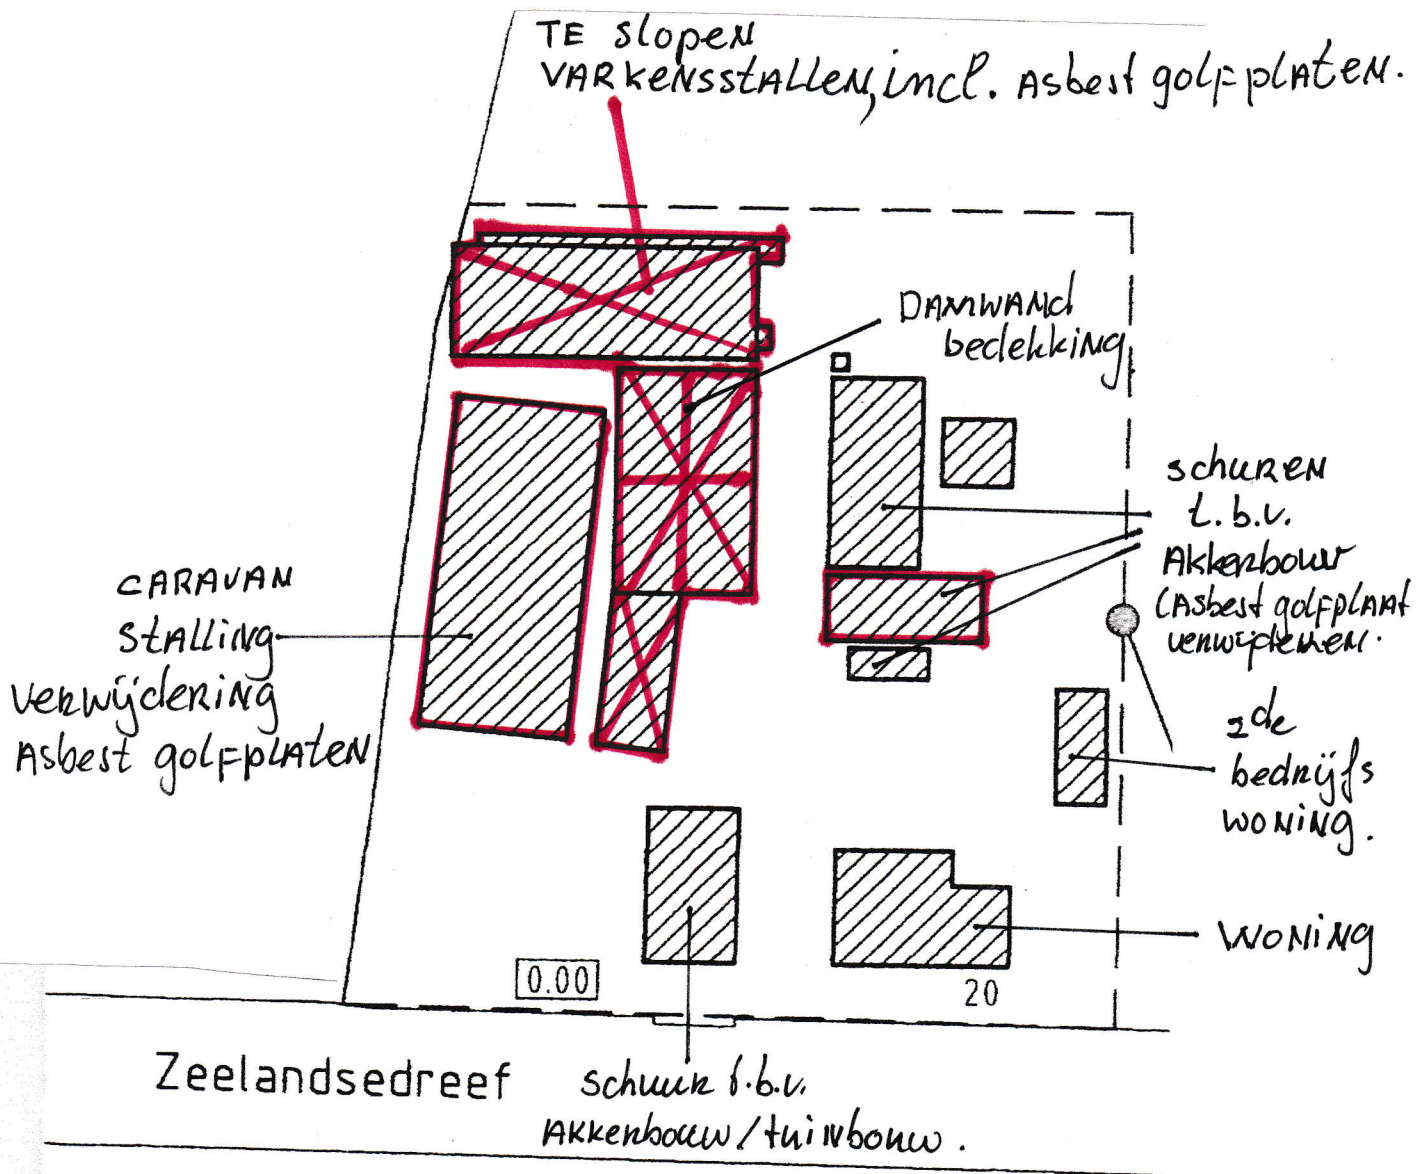 TE slopen
VARKENSSTALLEN, incl. Asbest golfplaten.
DAMWANd
bedekking
schuren
t.b.v.
Akkerbouw
(Asbest golfplaat
verwijderen.
CARAVAN
Stalling
Verwijdering
Asbest golfplaten
2de
bedrijfs
woning.
WONING
0.00
20
Zeelandsedreef
schuur t.b.v.
Akkerbouw/tuinbouw.